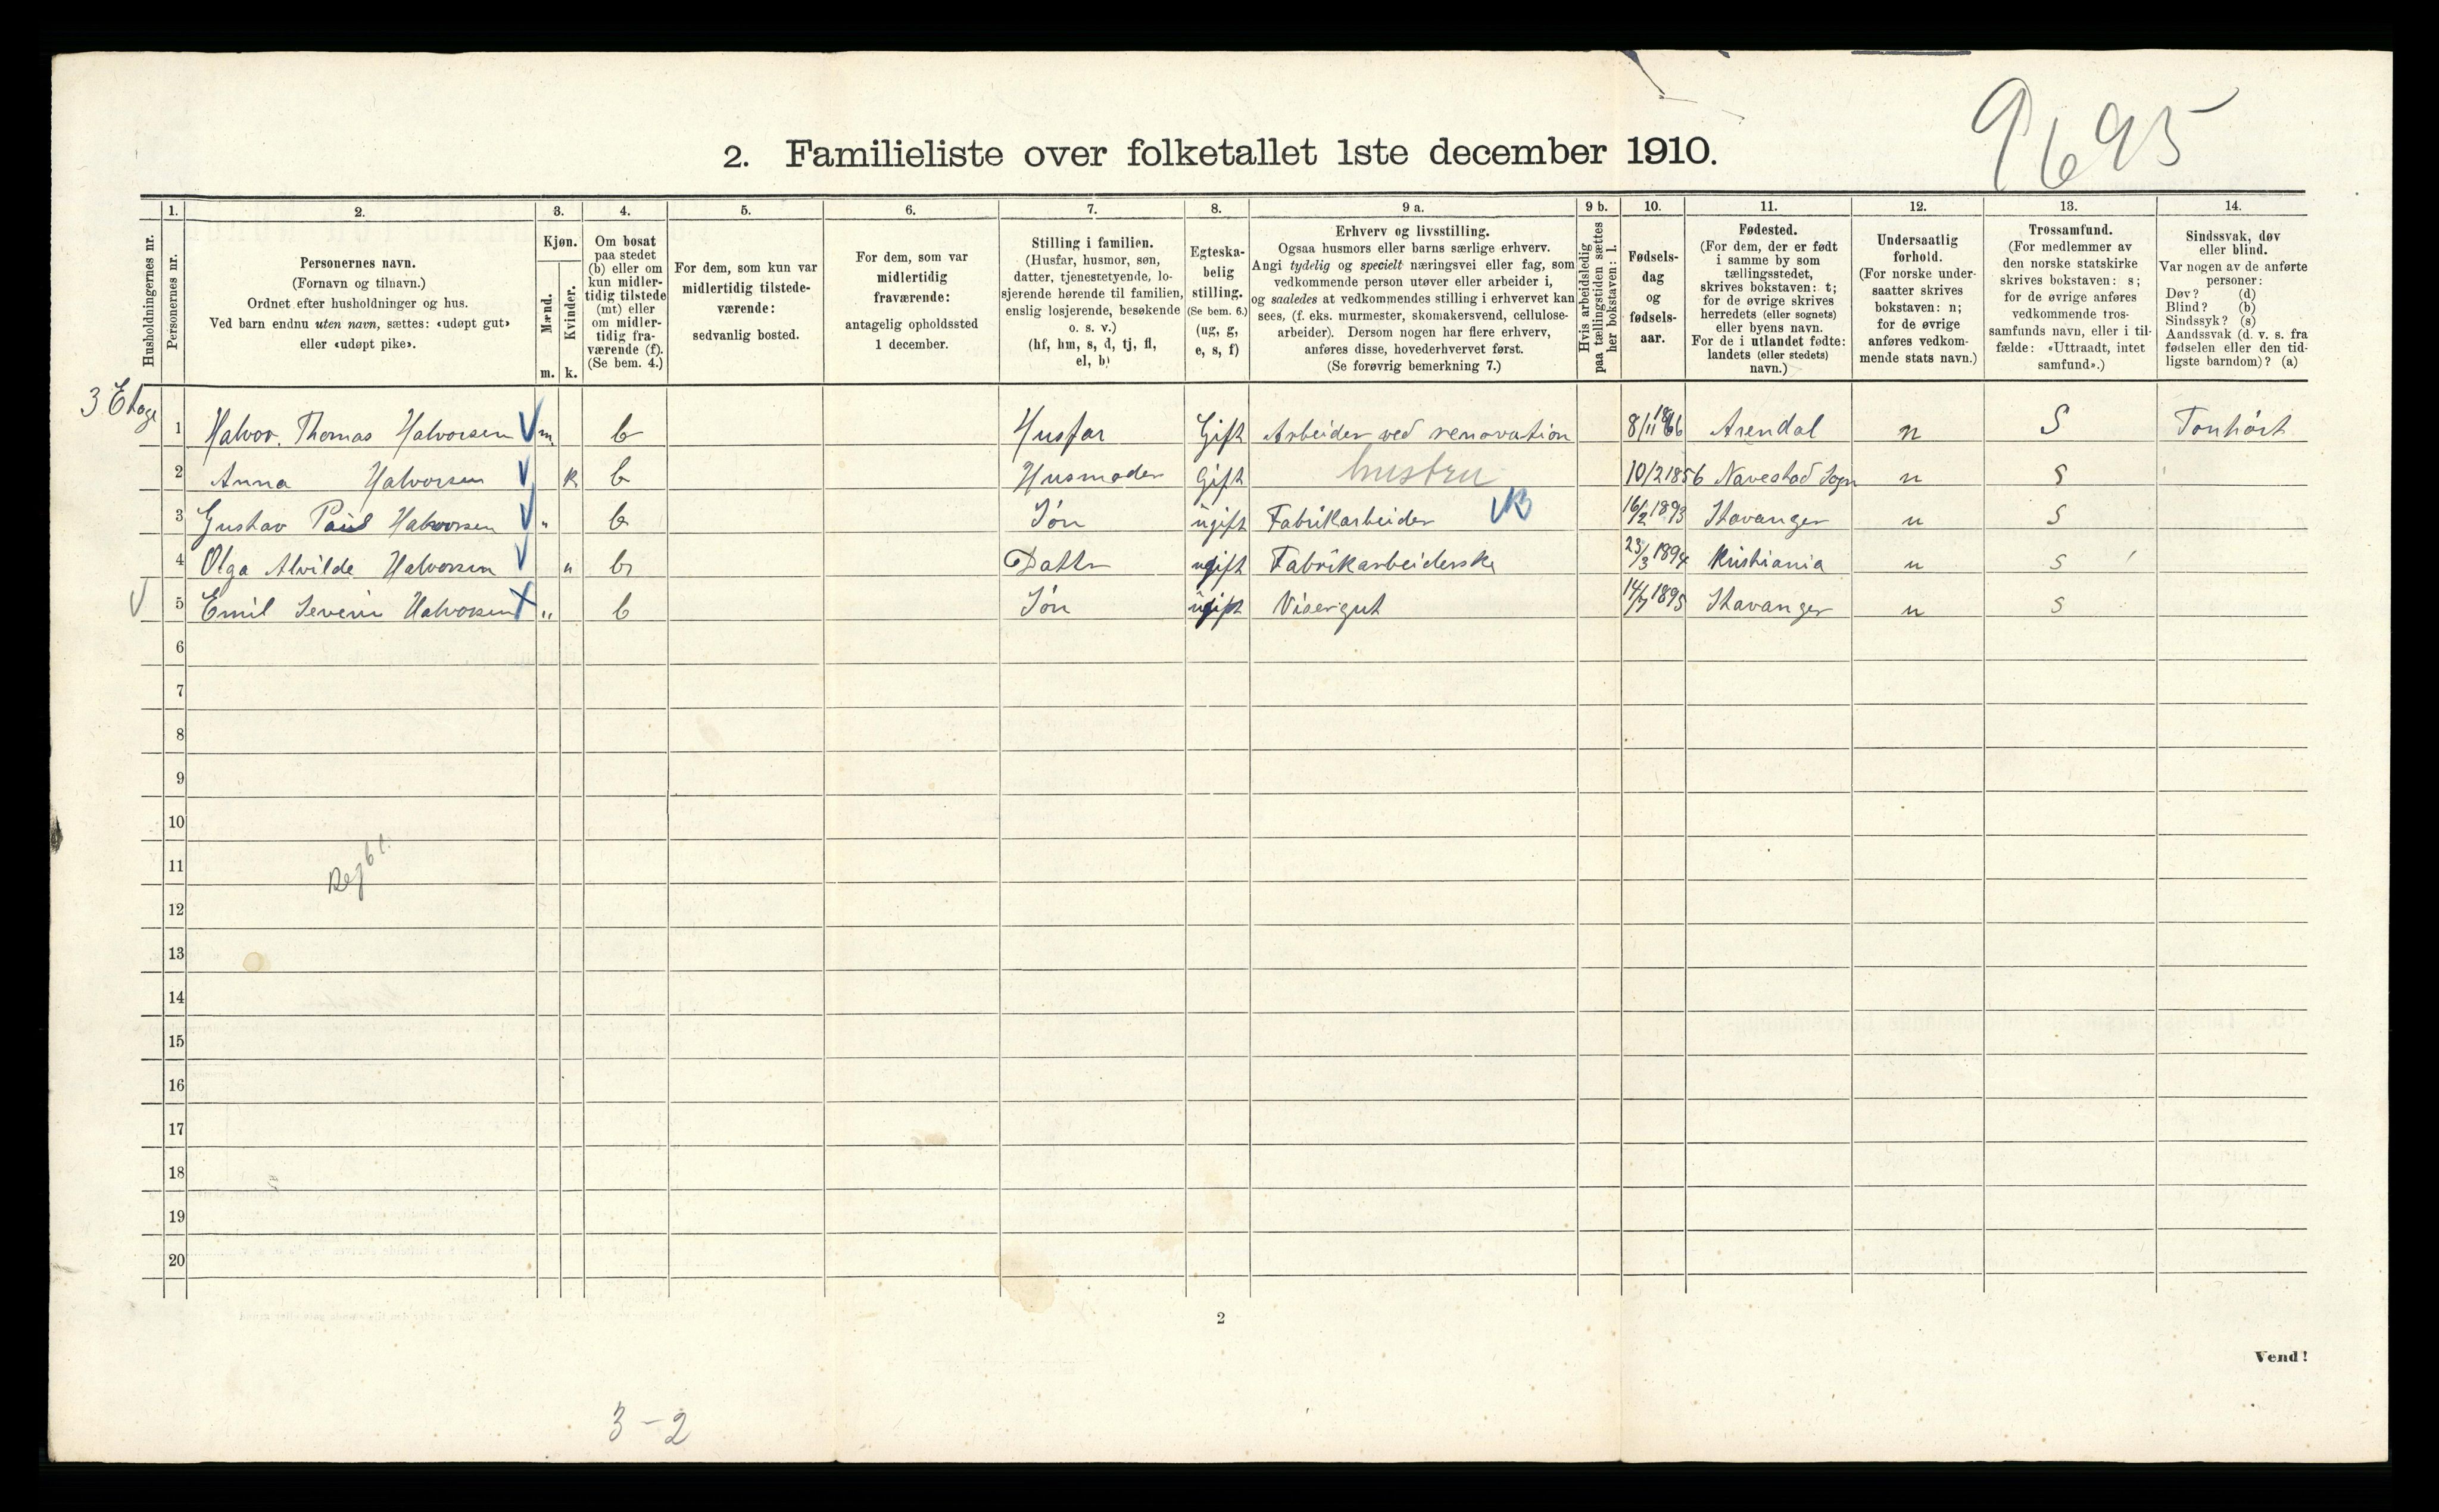 9695
2. Familieliste over folketallet 1ste december 1910.
1. 2. 3. 4. 5. 6. 7. 8. 9 a. 9 b. 10. 11. 12. 13. 14.
Husholdningernes nr.
Personernes nr.
Personernes navn.
(Fornavn og tilnavn.)
Ordnet efter husholdninger og hus.
Ved barn endnu uten navn, sættes: «udøpt gut»
eller «udøpt pike».
Kjøn.
Mænd.
Kvinder.
m. k.
Om bosat
paa stedet
(b) eller om
kun midler-
tidig tilstede
(mt) eller
om midler-
tidig fra-
værende (f).
(Se bem. 4.)
For dem, som kun var
midlertidig tilstede-
værende:
sedvanlig bosted.
For dem, som var
midlertidig
fraværende:
antagelig opholdssted
1 december.
Stilling i familien.
(Husfar, husmor, søn,
datter, tjenestetyende, lo-
sjerende hørende til familien,
enslig losjerende, besøkende
o. s. v.)
(hf, hm, s, d, tj, fl,
el, b)
Egteska-
belig
stilling.
(Se bem. 6.)
(ug, g,
e, s, f)
Erhverv og livsstilling.
Ogsaa husmors eller barns særlige erhverv.
Angi tydelig og specielt næringsvei eller fag, som
vedkommende person utøver eller arbeider i,
og saaledes at vedkommendes stilling i erhvervet kan
sees, (f. eks. murmester, skomakersvend, cellulose-
arbeider). Dersom nogen har flere erhverv,
anføres disse, hovederhvervet først.
(Se forøvrig bemerkning 7.)
Hvis arbeidsledig
paa tællingstiden sættes
her bokstaven: l.
Fødsels-
dag
og
fødsels-
aar.
Fødested.
(For dem, der er født
i samme by som
tællingsstedet,
skrives bokstaven: t;
for de øvrige skrives
herredets (eller sognets)
eller byens navn.
For de i utlandet fødte:
landets (eller stedets)
navn.)
Undersaatlig
forhold.
(For norske under-
saatter skrives
bokstaven: n;
for de øvrige
anføres vedkom-
mende stats navn.)
Trossamfund.
(For medlemmer av
den norske statskirke
skrives bokstaven: s;
for de øvrige anføres
vedkommende tros-
samfunds navn, eller i til-
fælde: «Uttraadt, intet
samfund».)
Sindssvak, døv
eller blind.
Var nogen av de anførte
personer:
Døv? (d)
Blind? (b)
Sindssyk? (s)
Aandssvak (d. v. s. fra
fødselen eller den tid-
ligste barndom)? (a)
3 Etage
1 Halvor. Thomas Halvorsen m. b Husfar Gift Arbeider ved renovation 8/11 1866 Arendal n S Tonhört
2 Anna Halvorsen k b Husmoder Gift hustru 10/2 1856 Navestad Sogn n S
3 Gustav Paul Halvorsen " b Sön ugift Fabrikarbeider 16/2 1893 Stavanger n S
4 Olga Alvilde Halvorsen " b Datter ugift Fabrikarbeiderske 23/3 1894 Kristiania n S
5 Emil Severin Halvorsen " b Sön ugift Visergut 14/7 1895 Stavanger n S
6
7
8
9
10
11
12
13
14
15
16
17
18
19
20
2
Vend!
3 - 2